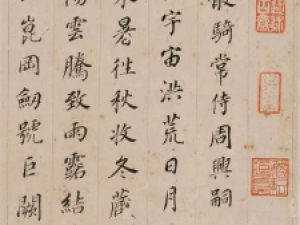 散騎常侍周興嗣
宇宙洪荒日月
來暑往秋收冬藏
陽雲騰致雨露結
崑岡劒號巨闕